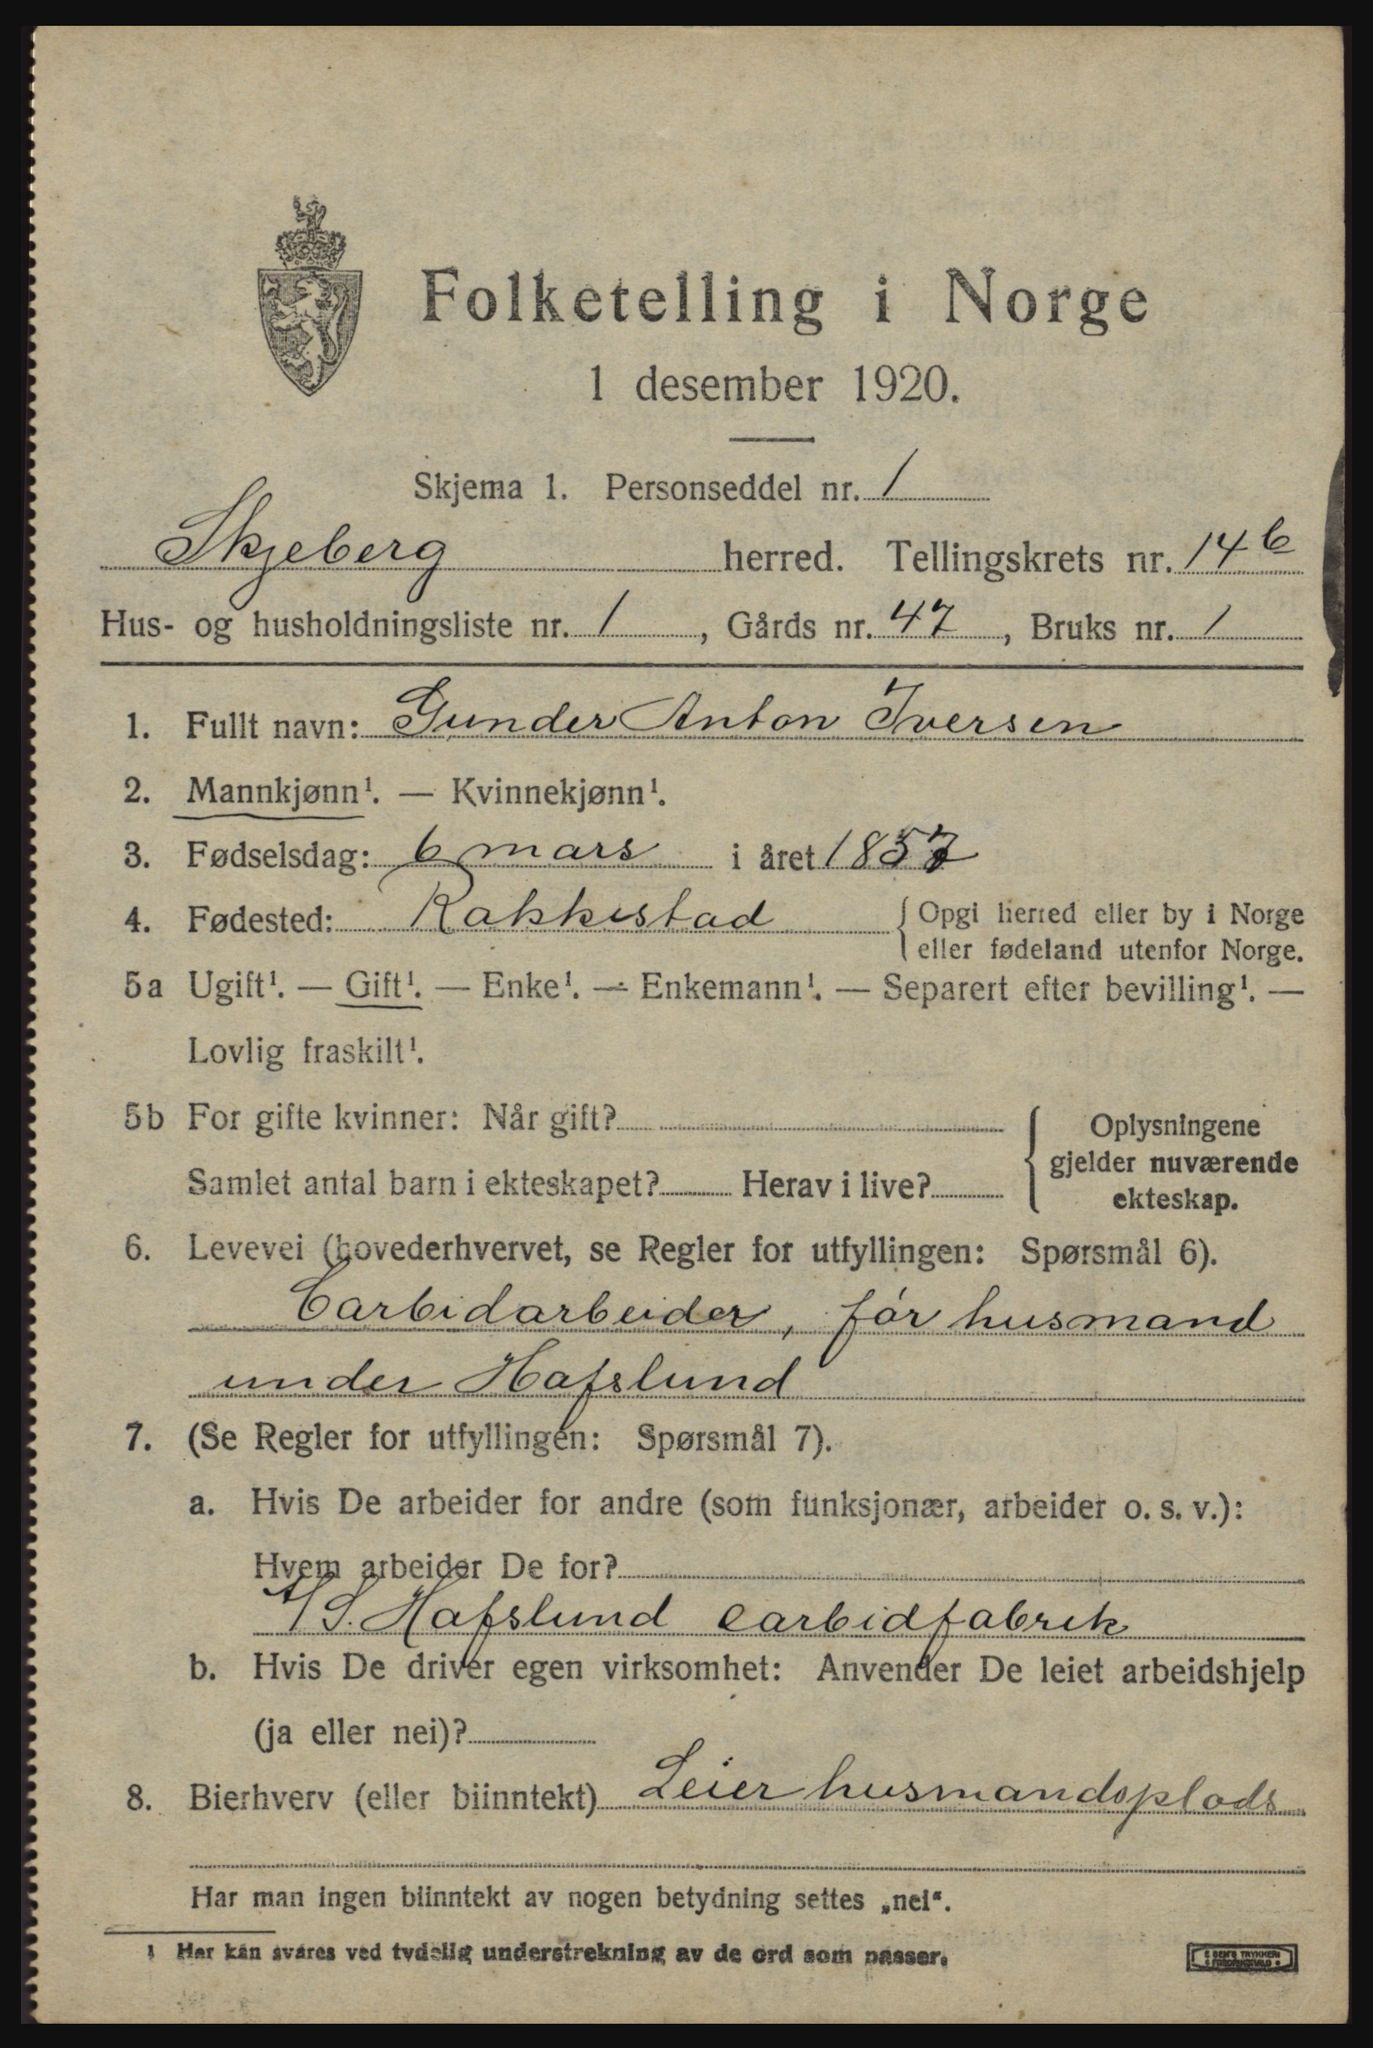 Folketelling i Norge
1 desember 1920.
Skjema 1. Personseddel nr. 1
Skjeberg herred. Tellingskrets nr. 14 b
Hus- og husholdningsliste nr. 1, Gårds nr. 47, Bruks nr. 1
1. Fullt navn: Gunder Anton Iversen
2. Mannkjønn¹. — Kvinnekjønn¹.
3. Fødselsdag: 6 mars i året 1857
4. Fødested: Rakkestad { Opgi herred eller by i Norge
eller fødeland utenfor Norge.
5a Ugift¹. — Gift¹. — Enke¹. — Enkemann¹. — Separert efter bevilling¹. —
Lovlig fraskilt¹.
5b For gifte kvinner: Når gift? { Oplysningene
gjelder nuværende
Samlet antal barn i ekteskapet? Herav i live?
ekteskap.
6. Levevei (hovederhvervet, se Regler for utfyllingen: Spørsmål 6).
Carbidarbeider, før husmand
under Hafslund
7. (Se Regler for utfyllingen: Spørsmål 7).
a. Hvis De arbeider for andre (som funksjonær, arbeider o. s. v.):
Hvem arbeider De for?
A/S. Hafslund carbidfabrik
b. Hvis De driver egen virksomhet: Anvender De leiet arbeidshjelp
(ja eller nei)?
8. Bierhverv (eller biinntekt) Leier husmandsplads
Har man ingen biinntekt av nogen betydning settes „nei“.
¹ Her kan svares ved tydelig understrekning av de ord som passer.